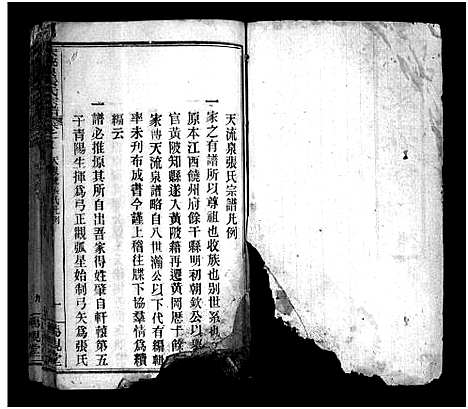 天流泉張氏宗譜凡例
一家之有譜所以尊祖也收族也別世系也
原本江西饒州府餘干縣明初朝欽公以
官黃陂知縣遂入黃陂籍再遷黃岡歷十餘
家傳天流泉譜略自八世瀚公以下代有編輯
率未刊布成書今謹上稽往牒下協羣情爲續
編云
一譜必推原其所自出吾家得姓肇自軒轅第五
子青陽生揮爲弓正觀弧星始制弓矢爲張氏